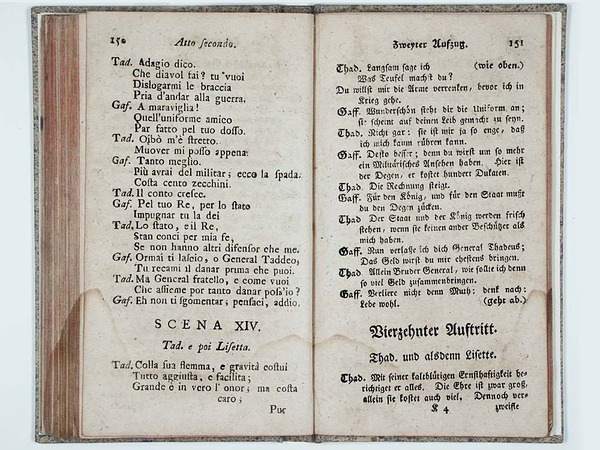 150 Atto secondo.
Tad. Adagio dico.
Che diavol fai? tu vuoi
Dislogarmi le braccia
Pria d'andar alla guerra.
Gaf. A maraviglia!
Quell'uniforme amico
Par fatto pel tuo dosso.
Tad. Oibò m'è stretto.
Muover mi posso appena.
Gaf. Tanto meglio.
Più avrai del militar; ecco la spada.
Costa cento zecchini.
Tad. Il conto cresce.
Gaf. Pel tuo Re, per lo stato
Impugnar tu la dei
Tad. Lo stato, e il Re,
Stan conci per mia fe,
Se non hanno altri difensor che me.
Gaf. Ormai ti lascio, o General Taddeo,
Tu recami il danar prima che puoi.
Tad. Ma General fratello, e come vuoi
Che assieme por tanto danar poss'io?
Gaf. Eh non ti sgomentar; pensaci, addio.
SCENA XIV.
Tad. e poi Lisetta.
Tad. Colla sua flemma, e gravità costui
Tutto aggiusta, e facilita;
Grande è in vero l'onor; ma costa
caro;
Pur
Zweyter Aufzug. 151
Thad. Langsam sage ich (wie oben.)
Was Teufel machst du?
Du willst mir die Arme verrenken, bevor ich in
Krieg gehe.
Gaff. Wunderschön steht dir die Uniform an;
sie scheint auf deinen Leib gemacht zu seyn.
Thad. Nicht gar: sie ist mir ja so enge, daß
ich mich kaum rühren kann.
Gaff. Desto besser; denn du wirst um so mehr
ein Militärisches Ansehen haben. Hier ist
der Degen, er kostet hundert Dukaten.
Thad. Die Rechnung steigt.
Gaff. Für den König, und für den Staat mußt
du den Degen zücken.
Thad Der Staat und der König werden frisch
stehen, wenn sie keinen ander Beschützer als
mich haben.
Gaff. Nun verlaße ich dich General Thadeus;
Das Geld wirst du mir ehestens bringen.
Thad. Allein Bruder General, wie sollte ich denn
so viel Geld zusammenbringen.
Gaff. Verliere nicht denn Muth: denk nach:
Lebe wohl. (geht ab.)
Vierzehnter Auftritt.
Thad. und alsdenn Lisette.
Thad. Mit seiner kaltblütigen Ernsthaftigkeit be-
richtiget er alles. Die Ehre ist zwar groß,
allein sie kostet auch viel, Dennoch ver-
K 4 zweifle